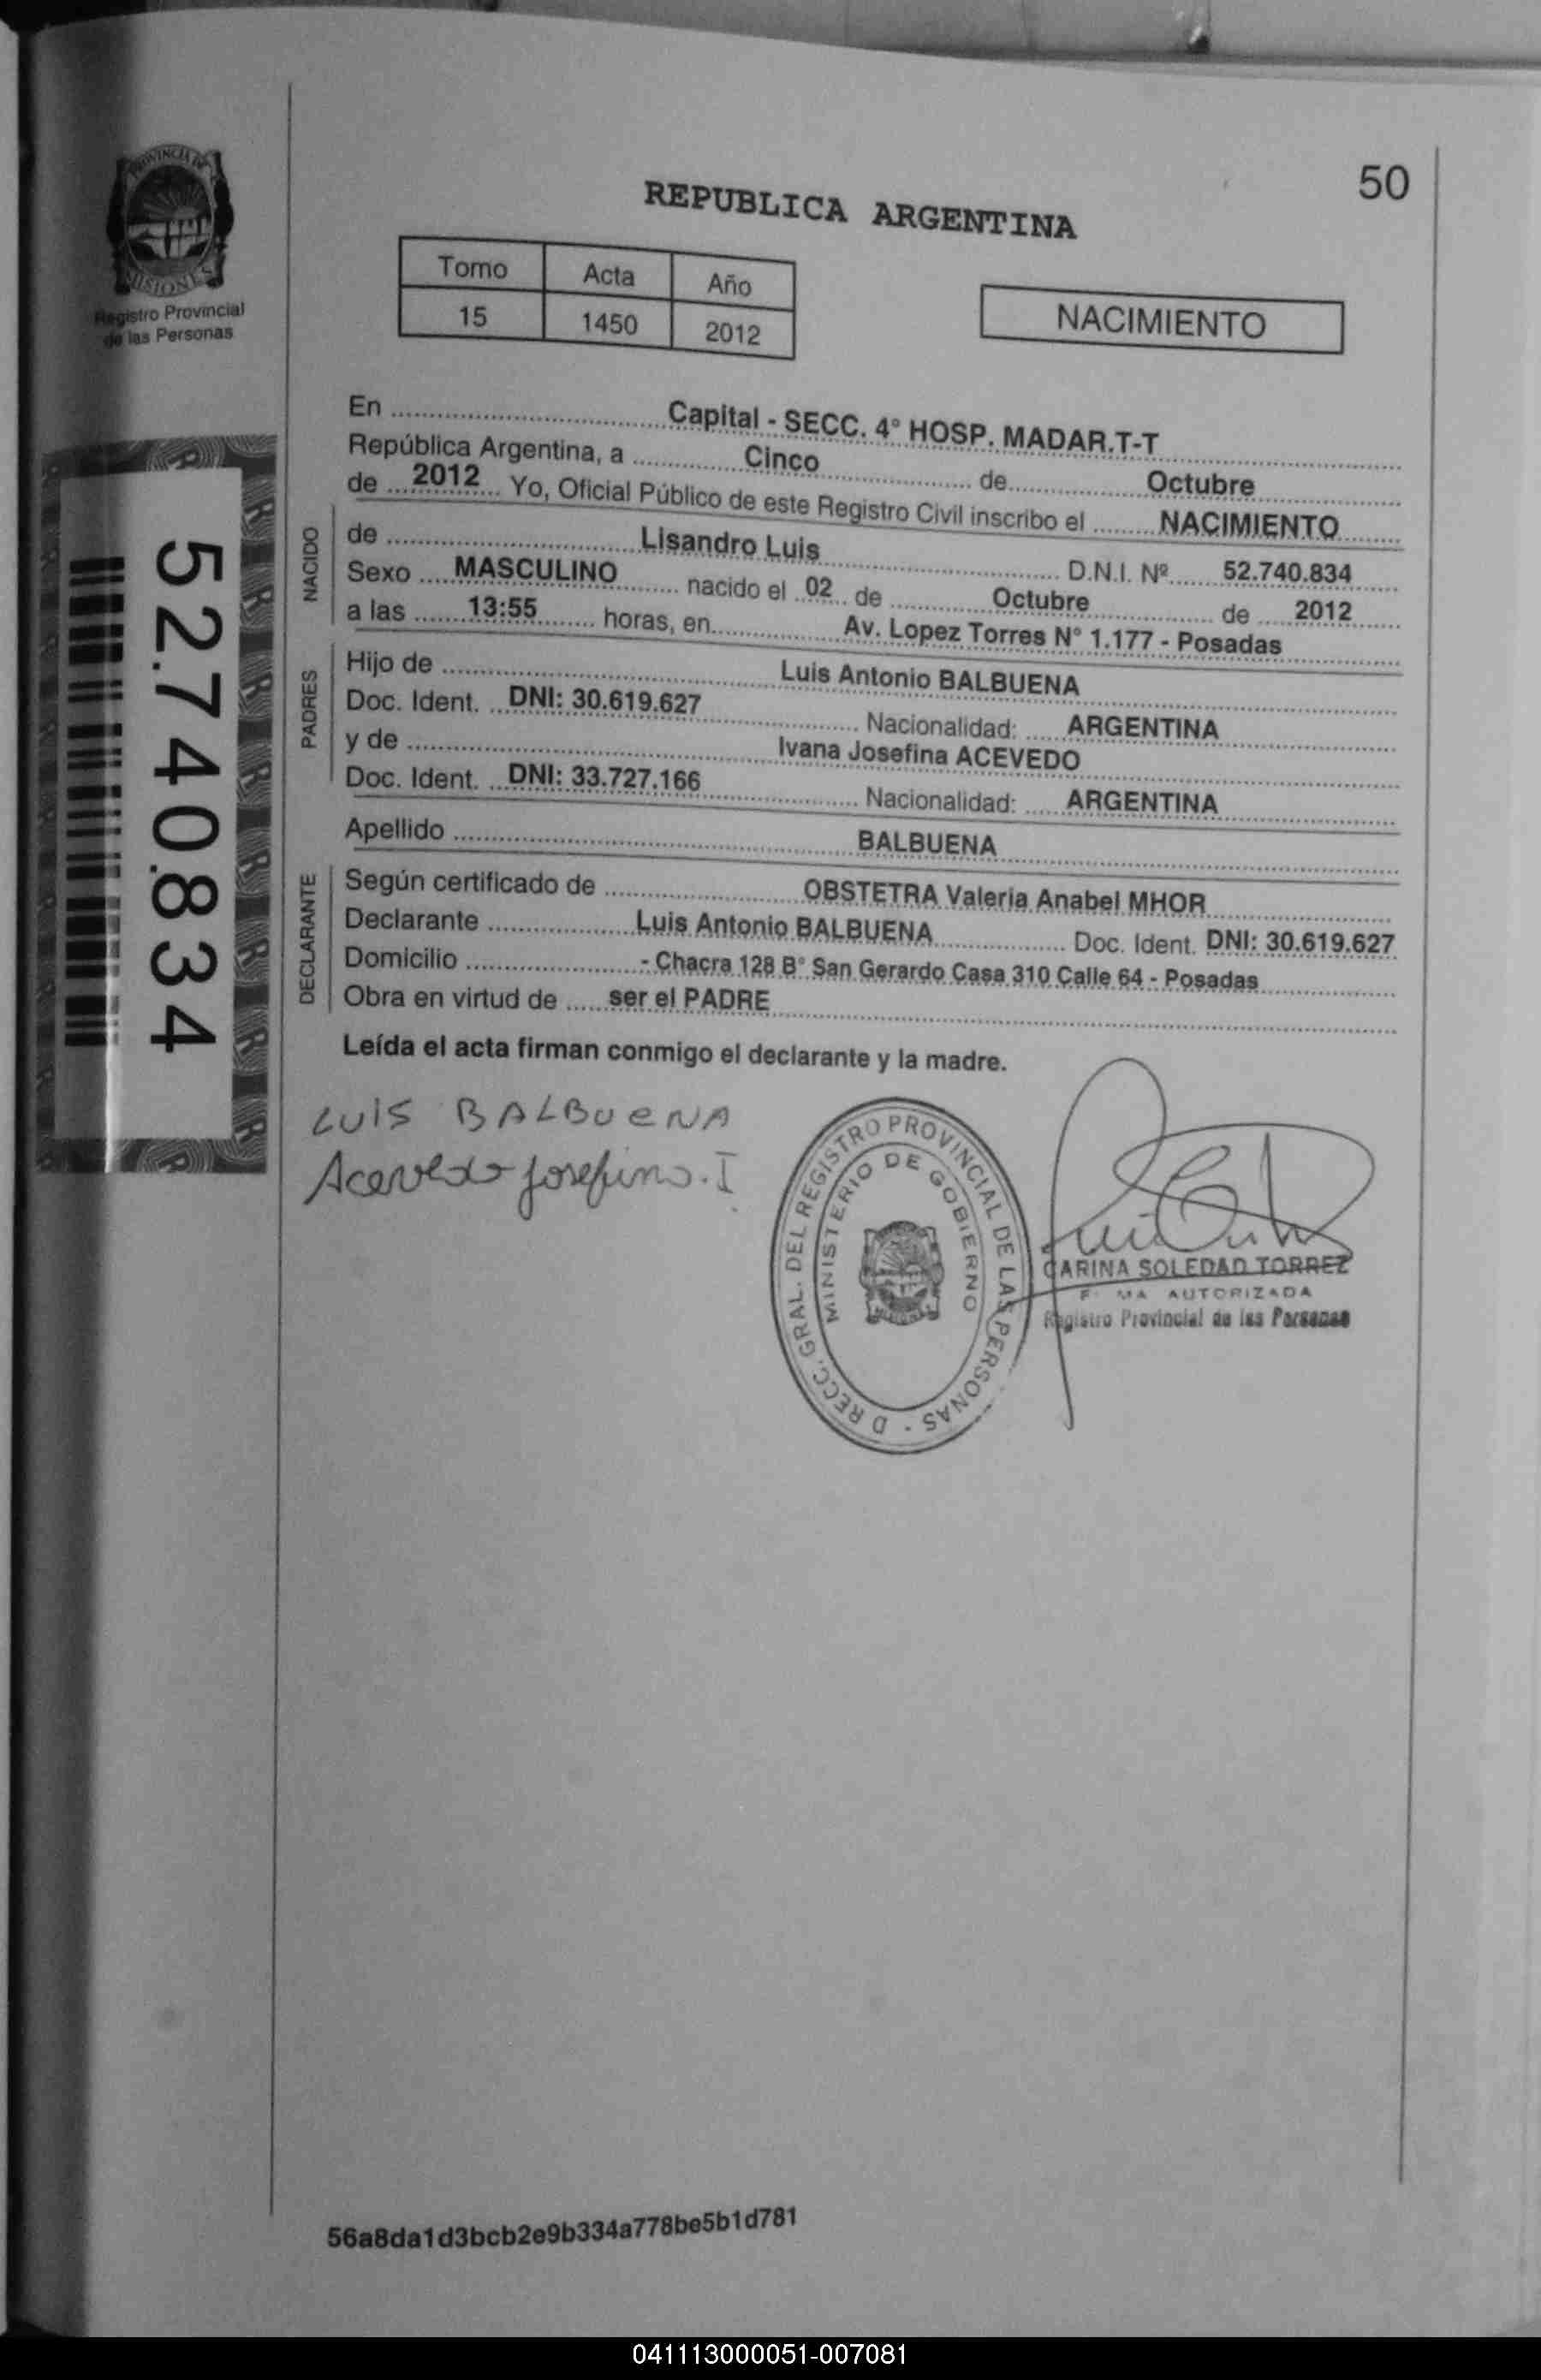 50
REPUBLICA ARGENTINA
PROVINCIA DE MISIONES
Registro Provincial
de las Personas
Tomo Acta Año
15 1450 2012
NACIMIENTO
52.740.834
En Capital - SECC. 4° HOSP. MADAR.T-T
República Argentina, a Cinco de Octubre
de 2012 Yo, Oficial Público de este Registro Civil inscribo el NACIMIENTO
NACIDO
de Lisandro Luis D.N.I. Nº 52.740.834
Sexo MASCULINO nacido el 02 de Octubre de 2012
a las 13:55 horas, en Av. Lopez Torres N° 1.177 - Posadas
PADRES
Hijo de Luis Antonio BALBUENA
Doc. Ident. DNI: 30.619.627 Nacionalidad: ARGENTINA
y de Ivana Josefina ACEVEDO
Doc. Ident. DNI: 33.727.166 Nacionalidad: ARGENTINA
Apellido BALBUENA
DECLARANTE
Según certificado de OBSTETRA Valeria Anabel MHOR
Declarante Luis Antonio BALBUENA Doc. Ident. DNI: 30.619.627
Domicilio - Chacra 128 B° San Gerardo Casa 310 Calle 64 - Posadas
Obra en virtud de ser el PADRE
Leída el acta firman conmigo el declarante y la madre.
LUIS BALBUENA
Acevedo Josefina. I
D RECC. GRAL. DEL REGISTRO PROVINCIAL DE LAS PERSONAS -
MINISTERIO DE GOBIERNO
CARINA SOLEDAD TORREZ
AUTORIZADA
Registro Provincial de las Personas
56a8da1d3bcb2e9b334a778be5b1d781
041113000051-007081